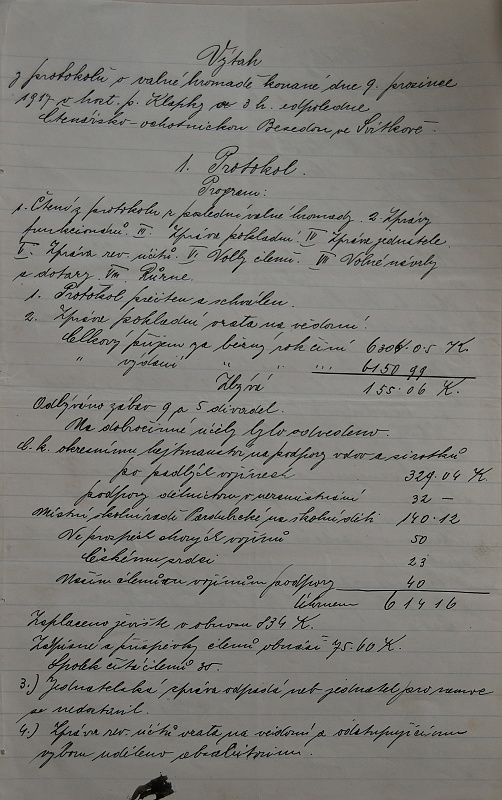 Výtah
z protokolu o valné hromadě konané dne 9. prosince
1917 v host. p. Klapky ve 3 h. odpoledne
Čtenářsko-ochotnickou Besedou ve Svítkově.
1. Protokol.
Program:
1. Čtení z protokolu z poslední valné hromady. 2. Zprávy
funkcionářů. III. Zpráva pokladní. IV Zpráva jednatele.
V. Zpráva rev. účtů. VI Volby členů. VII Volné návrhy
a dotazy. VIII Různé.
1. Protokol přečten a schválen.
2. Zpráva pokladní vzata na vědomí.
Celkový příjem za běžný rok činí 6306.05 K.
" vydání " " " 6150 99
Zbývá 155.06 K.
Odbýváno zábav 9 a 5 divadel.
Na dobročinné účely bylo odvedeno.
C. k. okresnímu hejtmanstvu na podpory vdov a sirotků
po padlých vojínech 329.04 K.
podpory dělnictvu 32 —
Místní školní radě Pardubické na školní děti 140.12
Ve prospěch chorých vojínů 50
Českému srdci 23
Našim členům vojínům podpory 40
Úhrnem 614 16
Zaplaceno jeviště v obnosu 834 K.
Zápisné a příspěvky členů obnáší 75.60 K.
Spolek čítá členů 30.
3.) Jednatelská zpráva odpadá neb jednatel pro nemoc
se nedostavil.
4.) Zpráva rev. účtů vzata na vědomí a odstupujícímu
výboru uděleno absolutorium.